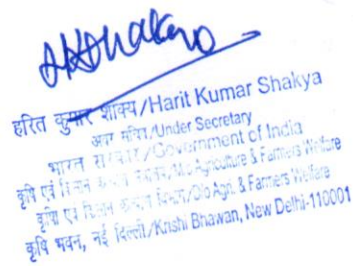 हरित कुमार शाक्य/Harit Kumar Shakya
अवर सचिव/Under Secretary
भारत सरकार/Government of India
कृषि एवं किसान कल्याण /M/o Agriculture & Farmers Welfare
कृषि एवं किसान कल्याण विभाग/D/o Agri. & Farmers Welfare
कृषि भवन, नई दिल्ली/Krishi Bhawan, New Delhi-110001